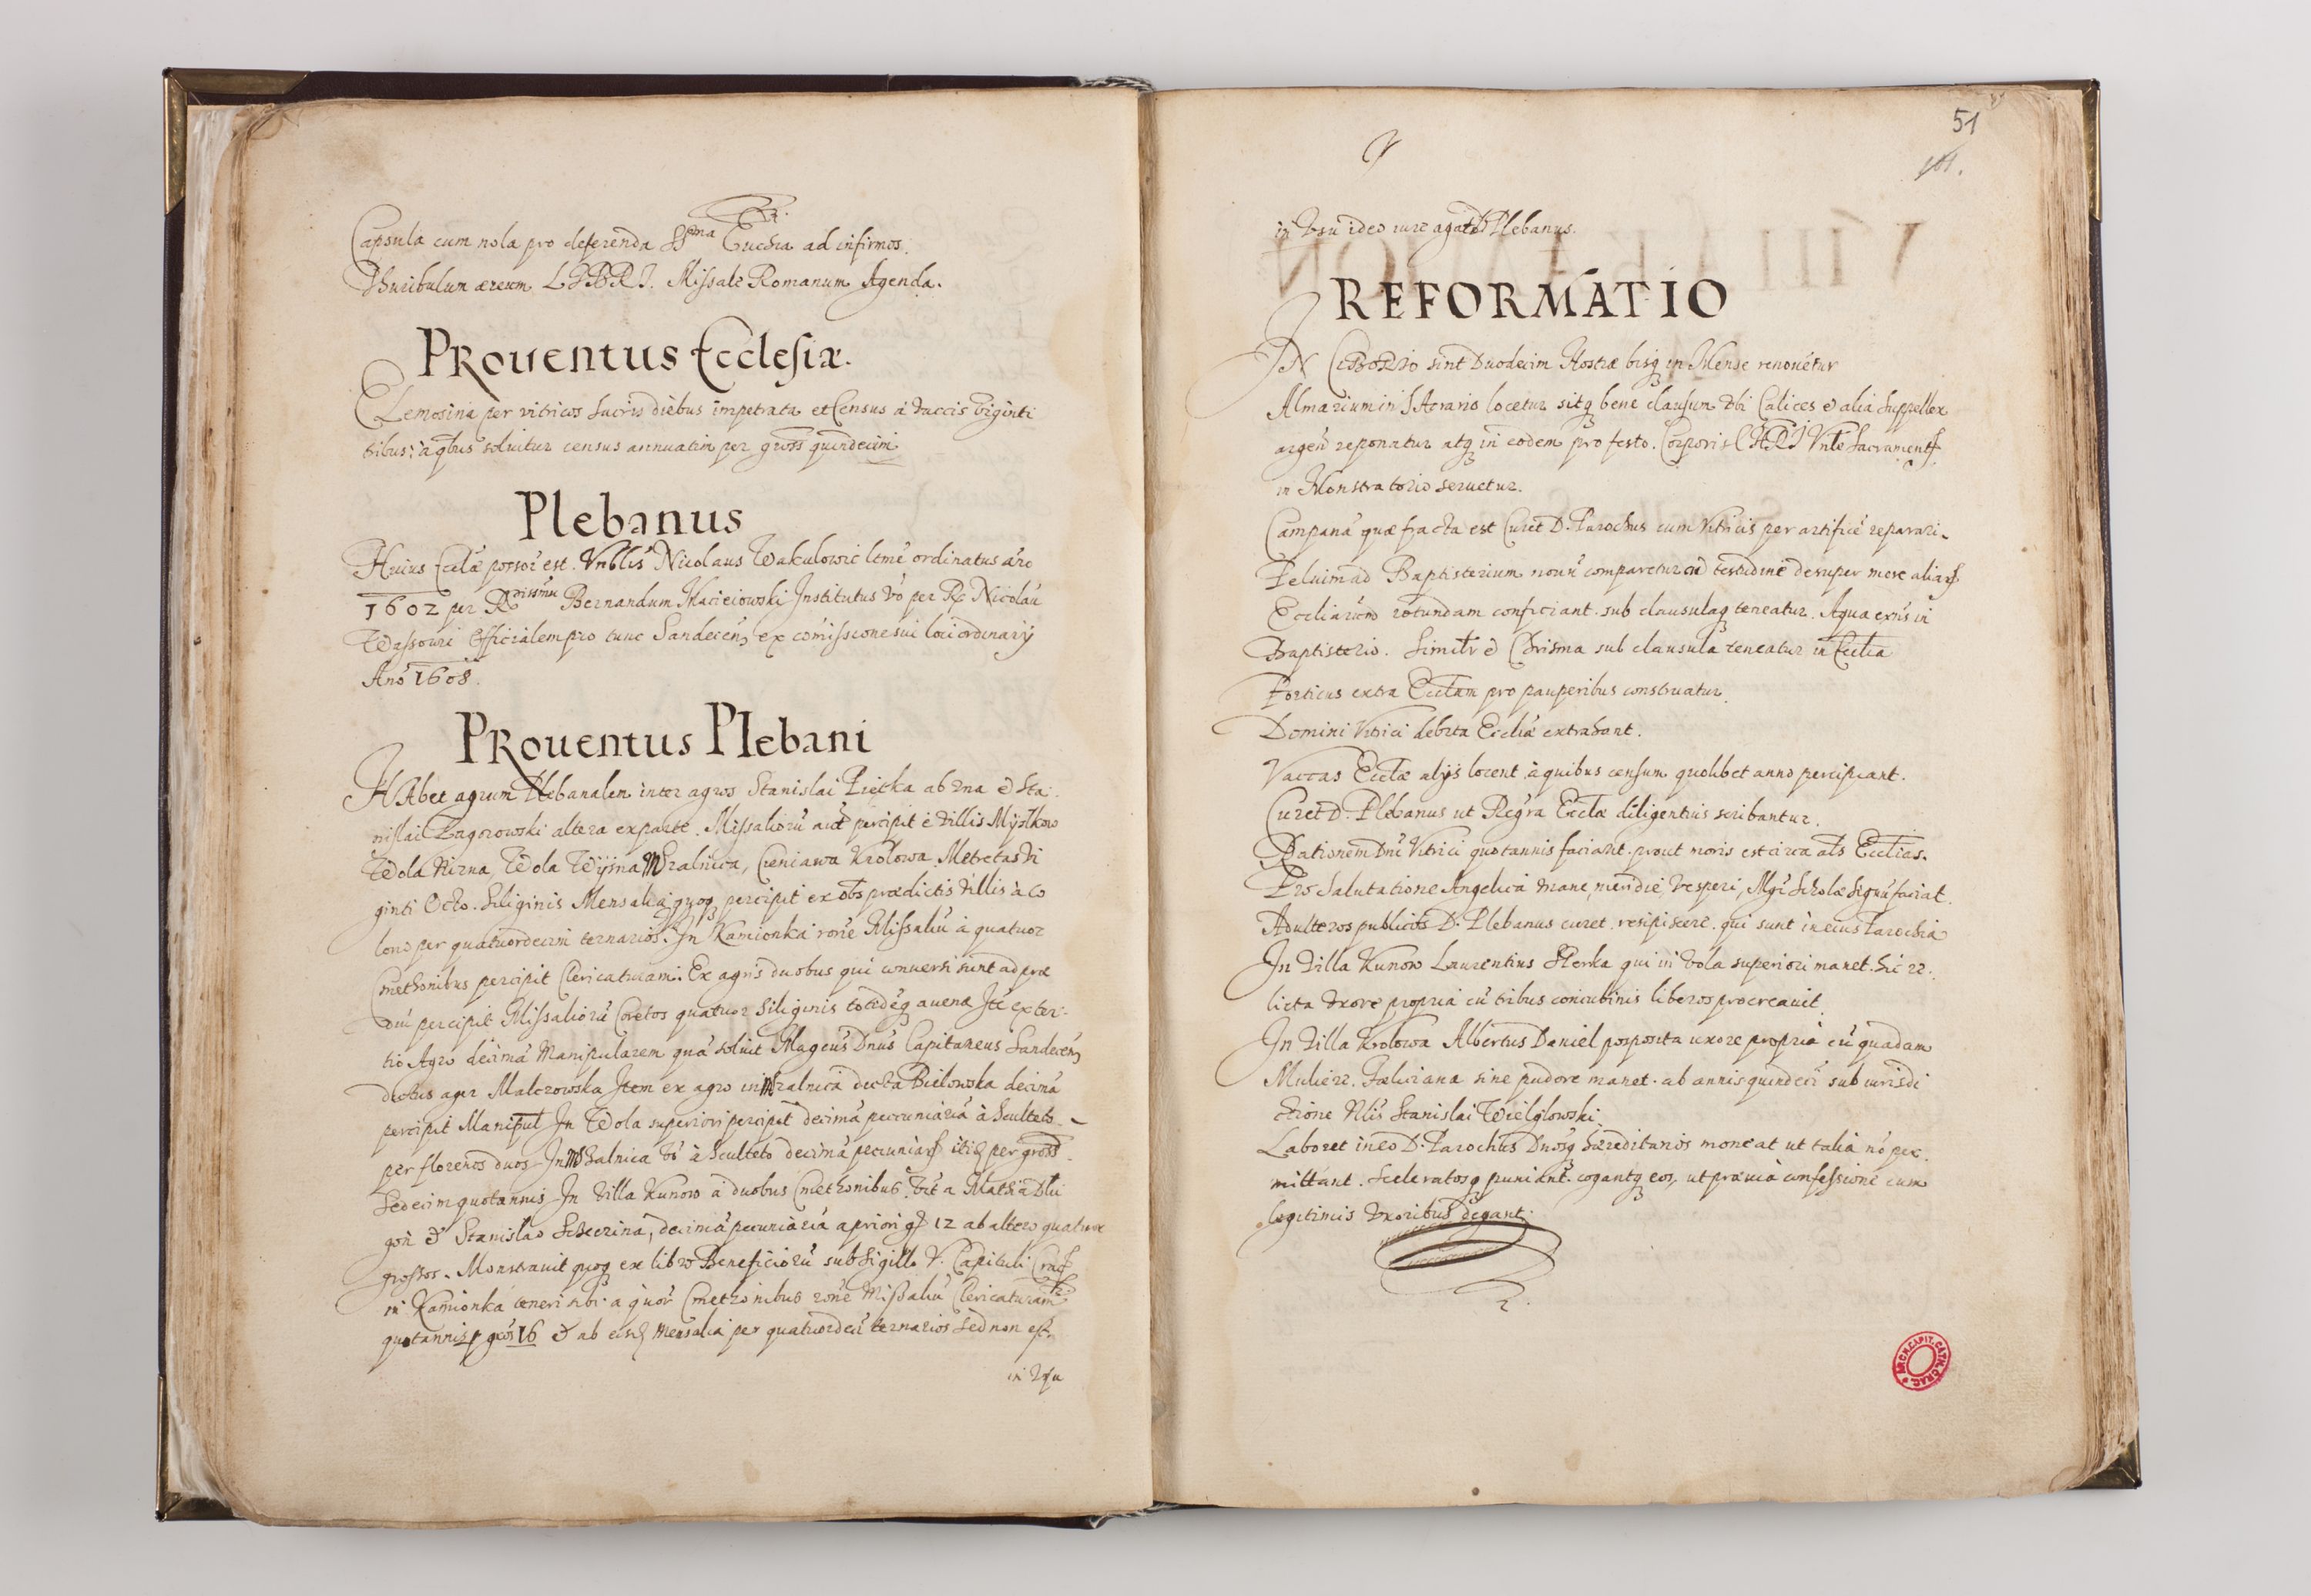 Capsula cum nola pro deferenda SSma Euchra ad infirmos.
Thuribulum aereum LIBRI. Missale Romanum Agenda.
PRoventus Ecclesiæ.
ELemosina per vitricos sacris diebus impetrata et Census à vaccis viginti
tribus: à qbus solvitur census annuatim per gross quindecim
Plebanus
Huius Eccłæ possor est Vnblis Nicolaus Wakulowic ltmè ordinatus año
1602 per Rdissimũ Bernardum Macieiowski Institutus vò per Nicolaũ
officialem pro tunc Sandecen, ex comissione sui loci ordinarij
Anô 1608.
PRoventus Plebani
HAbet agrum Plebanalem inter agros Stanislai Piętka ab vna & Sta:
nislai Zagorowski altera ex parte. Missaliorũ aut percipit è villis Myzłkow
Wola Nizna, Wola Wyzna Mszalnica, Cieniawa Krolowa Metretas vi
ginti Octo. Siliginis Mensalia quoq percipit ex obs prædictis villis à co
lono per quatuordecim ternarios. In Kamionka rone Missaliũ à quatuor
Cmethonibus percipit Clericaturam. Ex agris duobus qui conversi sunt ad præ
diũ percipit Missaliorũ Coretos quatuor Siliginis totidẽq avenæ Itẽ ex ter:
tio Agro decimã Manipularem quã solvit Magcus Dnus Capitaneus Sandecen,
dictus ager Malczowska Item ex agro in Mszalnica dicta Bielowska decimã
percipit Manipul In Wola superiori percipit decimã pecuniariã à Sculteto
per florenos duos In Mszalnica vô à Sculteto decimã pecuniar per gross.
Sedecim quotannis In villa Kunow à duobus Cmethonibus vẽt a Mathia Dłu
gon & Stanislao Schecrina, decimã pecuniariã a priori gr 12 ab altero quatuor
grossos. Monstravit quoq ex libro Beneficiorũ sub Sigillo V. Capituli Crac
in Kamionka teneri sibi a quor Cmethonibus rone Missaliũ Clericaturam
quotannis p gros 16 & ab eisd Mensalia per quatuordeci ternarios sed non est
in vsu
51
101.
in Vsu ideo iure agatur Plebanus.
REFORMATIO
IN CIBORIO sint Duodecim Hostiæ bisq in Mense renovẽtur
Almarium in SAcrario locetur sitq bene clausum vbi Calices & alia suppellex
argen reponatur atq in eodem pro festo Corporis CHRI Vnłe Sacrament
in Monstratorio servetur.
Campanã quæ fracta est Curet D. Parochus cum Vitricis per artificẽ reparari.
Pelvim ad Baptisterium novũ comparetur testudine desuper more aliar
Eccliarum rotundam conficiant. sub clausulaq teneatur. Aqua in
Baptisterio. Similr & Chrisma sub clausula teneatur in Ecclia
Porticus extra Eccłam pro pauperibus construatur.
Domini Vitrici debita Eccliæ extrahant.
Vaccas Eccłæ alijs locent à quibus censum quolibet anno percipiant.
Curet D. Plebanus ut Regra Eccłæ diligentius scribantur.
Rationem Dni Vitrici quotannis faciant. prout moris est circa als Ecclias.
Pro Salutatione Angelica mane, meridie, vesperi, Mgr Scholæ Signũ faciat.
Adulteros publicos D. Plebanus curet resipiscere. qui sunt in eius Parochia
In villa Kunow Laurentius Sterka qui in Vola superiori manet. hic re.
licta vxore propria cũ tribus concubinis liberos procreavit.
In villa Krolowa Albertus Daniel posposita uxore propria cũ quadam
Muliere. Fæliciana sine pudore manet. ab annis quindeci sub iurisdi
ctione Nlis Stanislai Wielglowski.
Laboret in eo D. Parochus Dnosq hæreditarios moneat ut talia nõ per.
mittant. Sceleratosq puniant. cogantq eos, ut prævia confessione cum
legitimis vxoribus degant.
ARCH. CAPIT. CATH. CRAC.